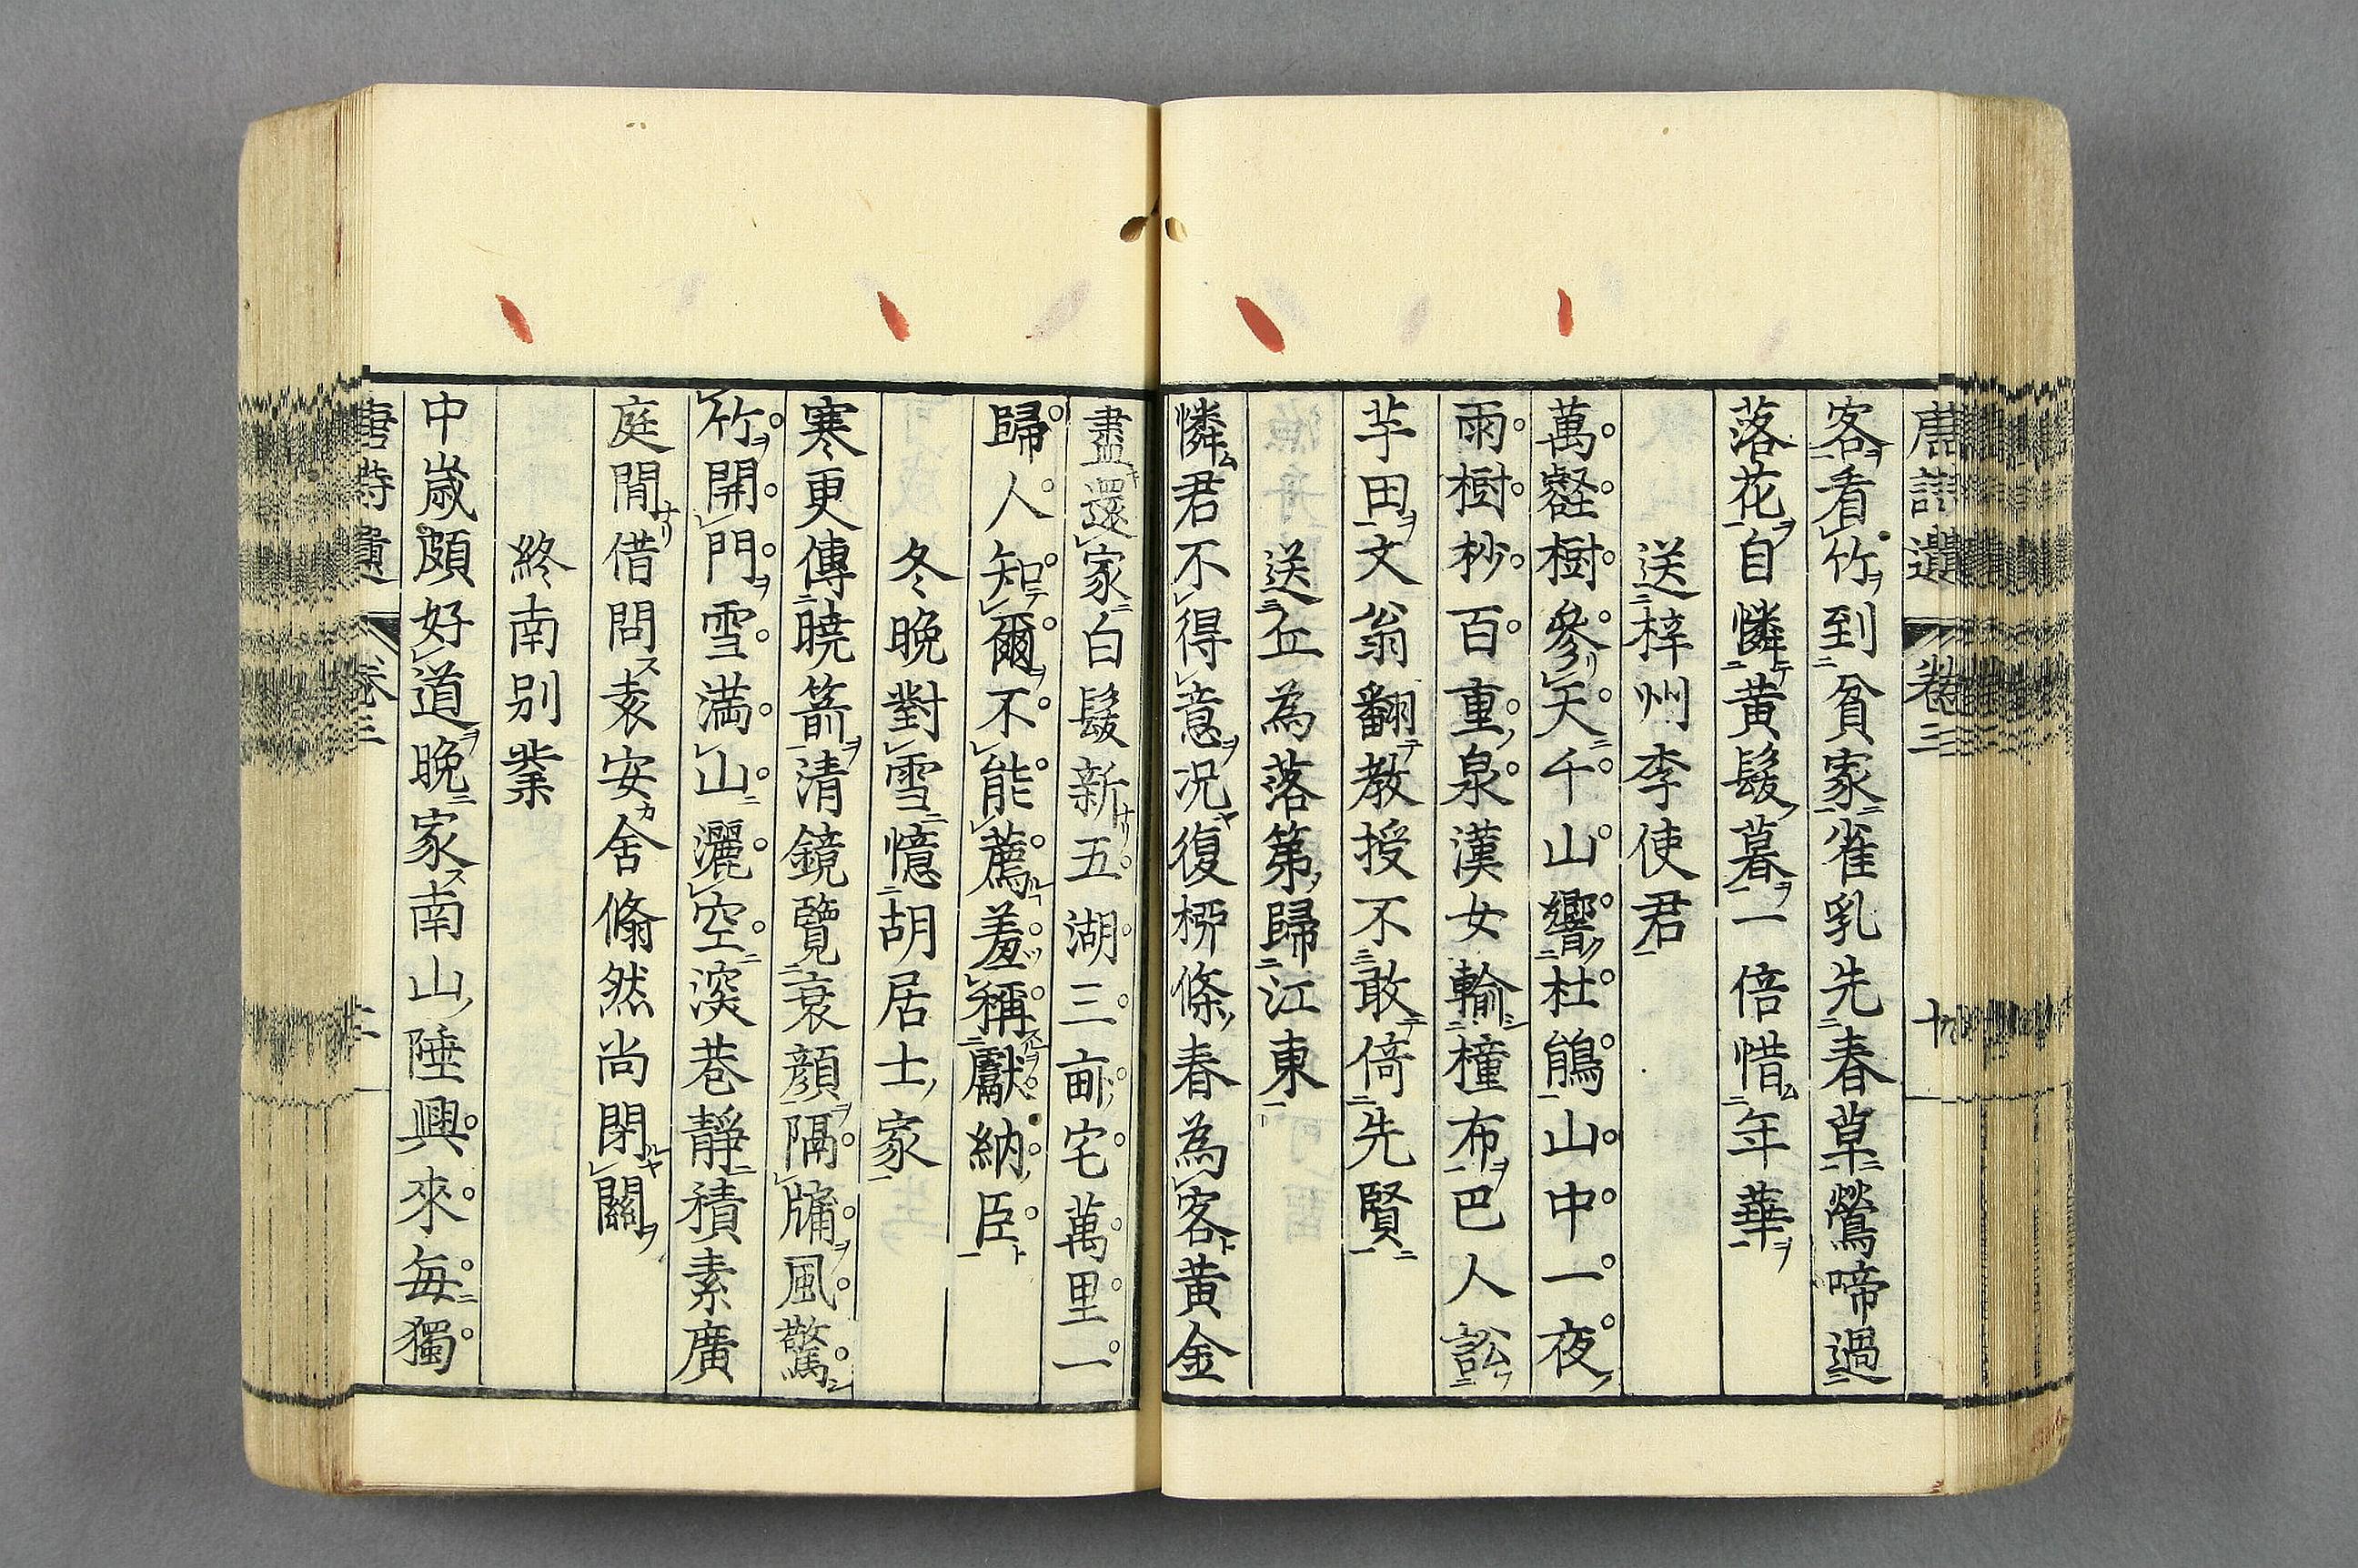 客看竹到貧家雀乳先春草鶯啼過
落花自憐黄髮暮一倍惜年華
送梓州李使君
萬壑樹參天千山響杜鵑山中一夜
雨樹杪百重泉漢女輸橦布巴人訟
芋田文翁翻教授不敢倚先賢
送丘為落第歸江東
憐君不得意况復栁條春為客黄金
盡還家白髮新五湖三畝宅萬里一
歸人知爾不能薦羞稱獻納臣
冬晚對雪憶胡居士家
寒更傳曉箭清鏡覽衰顔隔牖風驚
竹開門雪滿山灑空深巷靜積素廣
庭閒借問袁安舍翛然尚閉關
終南别業
中歲頗好道晚家南山陲興來每獨
卷三